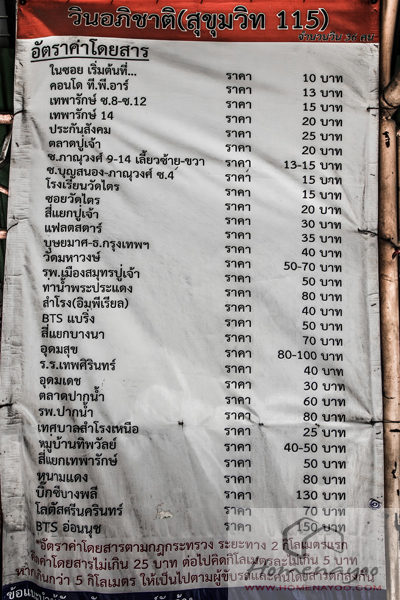 วินอภิชาติ(สุขุมวิท 115)
จำนวนวิน 36 คน
อัตราค่าโดยสาร
ในซอย เริ่มต้นที่... ราคา 10 บาท
คอนโด ที.พี.อาร์ ราคา 13 บาท
เทพารักษ์ ซ.8-ซ.12 ราคา 15 บาท
เทพารักษ์ 14 ราคา 20 บาท
ประกันสังคม ราคา 25 บาท
ตลาดปู่เจ้า ราคา 20 บาท
ซ.ภาณุวงศ์ 9-14 เลี้ยวซ้าย-ขวา ราคา 13-15 บาท
ซ.บุญสนอง-ภาณุวงศ์ ซ.4 ราคา 15 บาท
โรงเรียนวัดไตร ราคา 15 บาท
ซอยวัดไตร ราคา 20 บาท
สี่แยกปู่เจ้า ราคา 30 บาท
แฟลตสตาร์ ราคา 35 บาท
บุษยมาศ-ธ.กรุงเทพฯ ราคา 40 บาท
วัดมหาวงษ์ ราคา 50-70 บาท
รพ.เมืองสมุทรปู่เจ้า ราคา 50 บาท
ท่าน้ำพระประแดง ราคา 80 บาท
สำโรง(อิมพีเรียล) ราคา 40 บาท
BTS แบริ่ง ราคา 50 บาท
สี่แยกบางนา ราคา 70 บาท
อุดมสุข ราคา 80-100 บาท
ร.ร.เทพศิรินทร์ ราคา 40 บาท
อุดมเดช ราคา 30 บาท
ตลาดปากน้ำ ราคา 60 บาท
รพ.ปากน้ำ ราคา 80 บาท
เทศบาลสำโรงเหนือ ราคา 25 บาท
หมู่บ้านทิพวัลย์ ราคา 40-50 บาท
สี่แยกเทพารักษ์ ราคา 50 บาท
หนามแดง ราคา 80 บาท
บิ๊กซีบางพลี ราคา 130 บาท
โลตัสศรีนครินทร์ ราคา 70 บาท
BTS อ่อนนุช ราคา 150 บาท
*อัตราค่าโดยสารตามกฎกระทรวง ระยะทาง 2 กิโลเมตรแรก
ค่าโดยสารไม่เกิน 25 บาท ต่อไปคิดกิโลเมตรละไม่เกิน 5 บาท
หากเกินกว่า 5 กิโลเมตร ให้เป็นไปตามผู้ขับรถและคนโดยสารตกลงกัน
Home nayoo
WWW.HOMENAYOO.COM